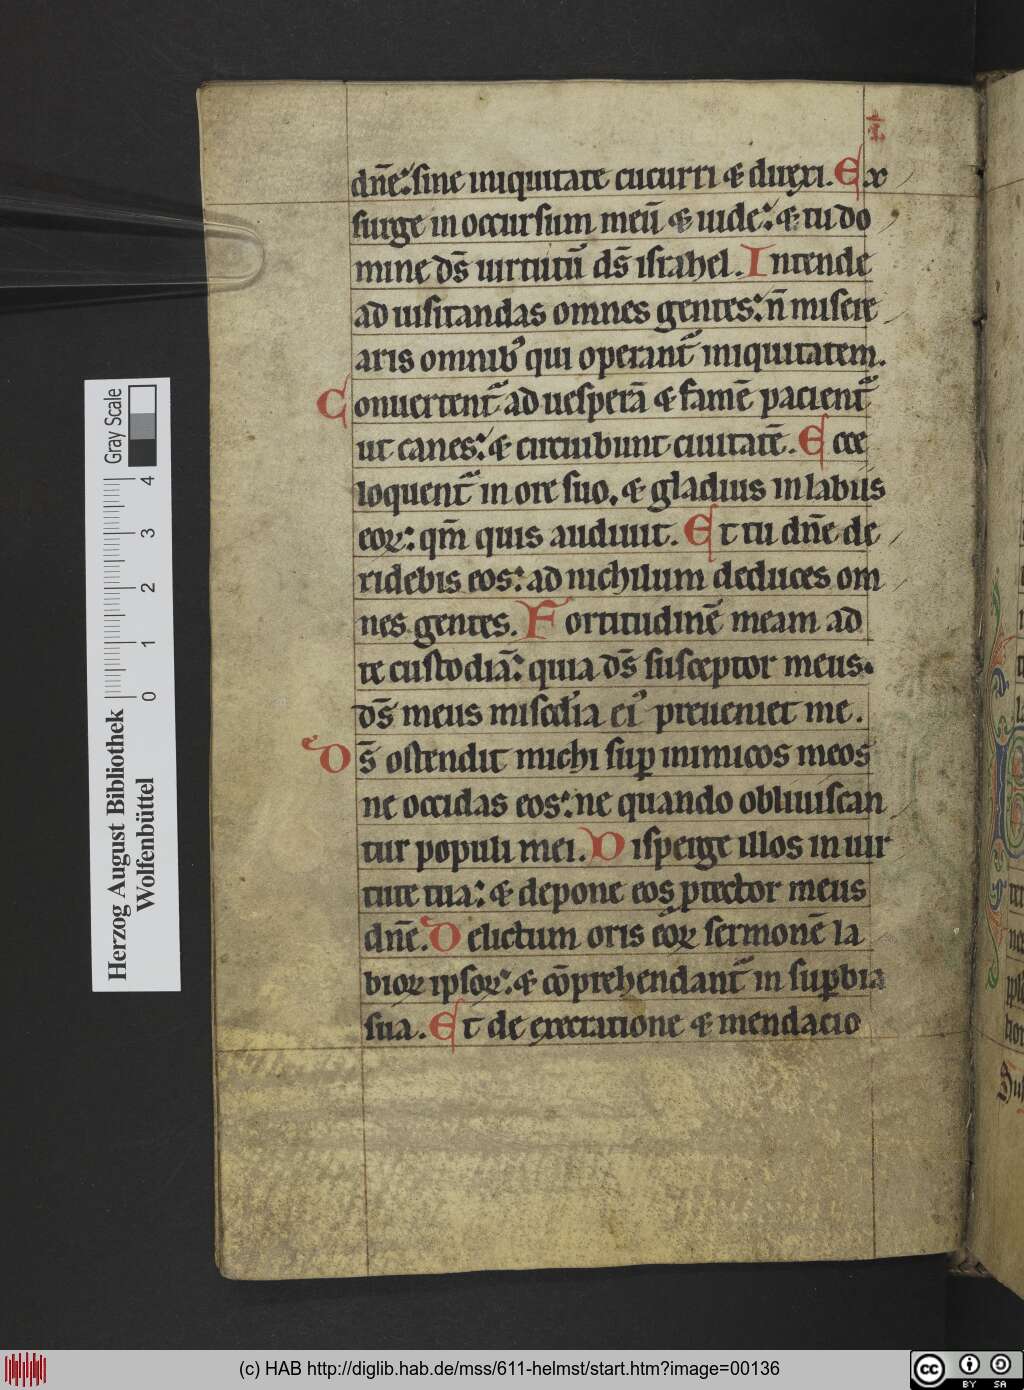 dn̄e: sine iniquitate cucurri & direxi. Ex
surge in occursum meū & uide: & tu do
mine ds̄ uirtutū ds̄ israhel. Intende
ad uisitandas omnes gentes: n̄ misere
aris omnib; qui operant᷑ iniquitatem.
Conuertent᷑ ad uesperā & famē pacient᷑
ut canes: & circuibunt ciuitatē. Ecce
loquent᷑ in ore suo, & gladius in labiis
eoꝝ: qm̄ quis audiuit. Et tu dn̄e de
ridebis eos: ad nichilum deduces om
nes gentes. Fortitudinē meam ad
te custodiā: quia ds̄ susceptor meus.
ds̄ meus misc̄dia ei᷒ preueniet me.
Ds̄ ostendit michi suꝑ inimicos meos
ne occidas eos: ne quando obliuiscan
tur populi mei. Disperge illos in uir
tute tua: & depone eos ꝓtector meus
dn̄e. Delictum oris eoꝝ sermonē la
bioꝝ ipsoꝝ: & cōprehendant᷑ in suꝑbia
sua. Et de execratione & mendacio
Herzog August Bibliothek
Wolfenbüttel
Gray Scale
0 1 2 3 4
(c) HAB http://diglib.hab.de/mss/611-helmst/start.htm?image=00136
cc BY SA